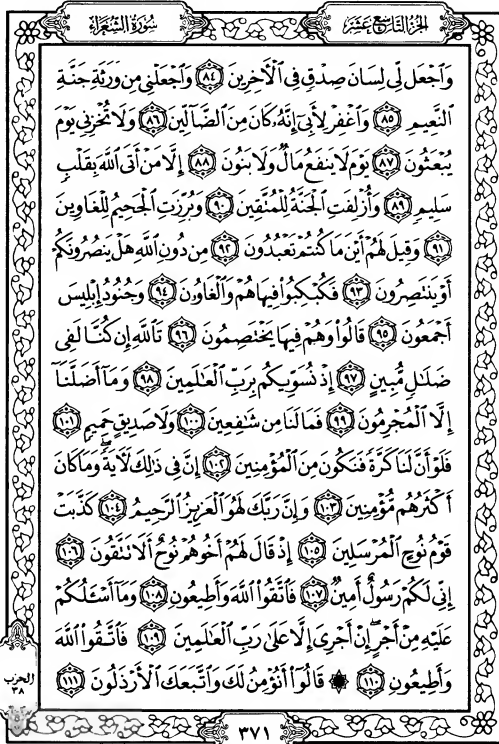 سُورَةُ الشُّعَرَاءِ
الجُزءُ التَّاسِعَ عَشَرَ
وَٱجْعَل لِّي لِسَانَ صِدْقٍ فِي ٱلْأَخِرِينَ ﴿٨٤﴾ وَٱجْعَلْنِي مِن وَرَثَةِ جَنَّةِ
ٱلنَّعِيمِ ﴿٨٥﴾ وَٱغْفِرْ لِأَبِيٓ إِنَّهُۥ كَانَ مِنَ ٱلضَّآلِّينَ ﴿٨٦﴾ وَلَا تُخْزِنِي يَوْمَ
يُبْعَثُونَ ﴿٨٧﴾ يَوْمَ لَا يَنفَعُ مَالٌ وَلَا بَنُونَ ﴿٨٨﴾ إِلَّا مَنْ أَتَى ٱللَّهَ بِقَلْبٍ
سَلِيمٍ ﴿٨٩﴾ وَأُزْلِفَتِ ٱلْجَنَّةُ لِلْمُتَّقِينَ ﴿٩٠﴾ وَبُرِّزَتِ ٱلْجَحِيمُ لِلْغَاوِينَ
﴿٩١﴾ وَقِيلَ لَهُمْ أَيْنَ مَا كُنتُمْ تَعْبُدُونَ ﴿٩٢﴾ مِن دُونِ ٱللَّهِ هَلْ يَنصُرُونَكُمْ
أَوْ يَنتَصِرُونَ ﴿٩٣﴾ فَكُبْكِبُوا۟ فِيهَا هُمْ وَٱلْغَاوُۥنَ ﴿٩٤﴾ وَجُنُودُ إِبْلِيسَ
أَجْمَعُونَ ﴿٩٥﴾ قَالُوا۟ وَهُمْ فِيهَا يَخْتَصِمُونَ ﴿٩٦﴾ تَٱللَّهِ إِن كُنَّا لَفِي
ضَلَٰلٍ مُّبِينٍ ﴿٩٧﴾ إِذْ نُسَوِّيكُم بِرَبِّ ٱلْعَٰلَمِينَ ﴿٩٨﴾ وَمَآ أَضَلَّنَآ
إِلَّا ٱلْمُجْرِمُونَ ﴿٩٩﴾ فَمَا لَنَا مِن شَٰفِعِينَ ﴿١٠٠﴾ وَلَا صَدِيقٍ حَمِيمٍ ﴿١٠١﴾
فَلَوْ أَنَّ لَنَا كَرَّةً فَنَكُونَ مِنَ ٱلْمُؤْمِنِينَ ﴿١٠٢﴾ إِنَّ فِي ذَٰلِكَ لَأَيَةً وَمَا كَانَ
أَكْثَرُهُم مُّؤْمِنِينَ ﴿١٠٣﴾ وَإِنَّ رَبَّكَ لَهُوَ ٱلْعَزِيزُ ٱلرَّحِيمُ ﴿١٠٤﴾ كَذَّبَتْ
قَوْمُ نُوحٍ ٱلْمُرْسَلِينَ ﴿١٠٥﴾ إِذْ قَالَ لَهُمْ أَخُوهُمْ نُوحٌ أَلَا تَتَّقُونَ ﴿١٠٦﴾
إِنِّي لَكُمْ رَسُولٌ أَمِينٌ ﴿١٠٧﴾ فَٱتَّقُوا۟ ٱللَّهَ وَأَطِيعُونِ ﴿١٠٨﴾ وَمَآ أَسْـَٔلُكُمْ
عَلَيْهِ مِنْ أَجْرٍ إِنْ أَجْرِيَ إِلَّا عَلَىٰ رَبِّ ٱلْعَٰلَمِينَ ﴿١٠٩﴾ فَٱتَّقُوا۟ ٱللَّهَ
وَأَطِيعُونِ ﴿١١٠﴾ ۞ قَالُوٓا۟ أَنُؤْمِنُ لَكَ وَٱتَّبَعَكَ ٱلْأَرْذَلُونَ ﴿١١١﴾
الحزب
٣٨
٣٧١